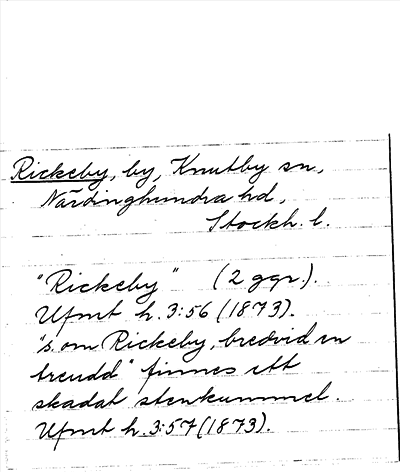 Rickeby, by, Knutby sn,
Närdinghundra hd,
Stockh. l.
"Rickeby" (2 ggr.).
Ufmt h. 3:56 (1873).
"s. om Rickeby, bredvid en
trevdd" finnes ett
skadat stenkummel.
Ufmt h. 3:57 (1873).